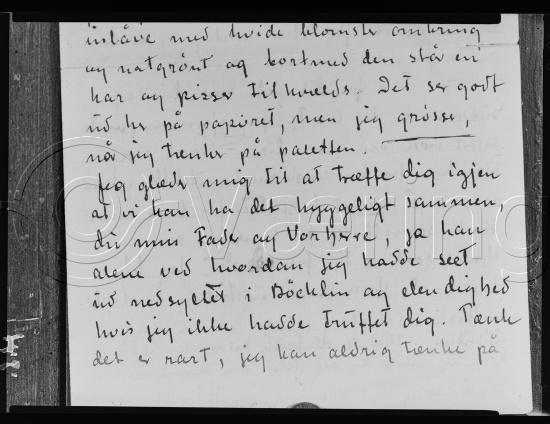 islåve med hvide blomster omkring
og natgrønt og bortmed den står en
har og pisser til kvælds. Det ser godt
ud her på papiret, men jeg grósser,
når jeg tænker på paletten.
Jeg glæder mig til at træffe dig igjen
at vi kan ha det hyggeligt sammen,
du min Fader og Vorherre, ja han
alene ved hvordan jeg hadde seet
ud nedsyltet i Böcklin og elendighed
hvis jeg ikke hadde truffet dig. Tænk
det er rart, jeg kan aldrig tænke på